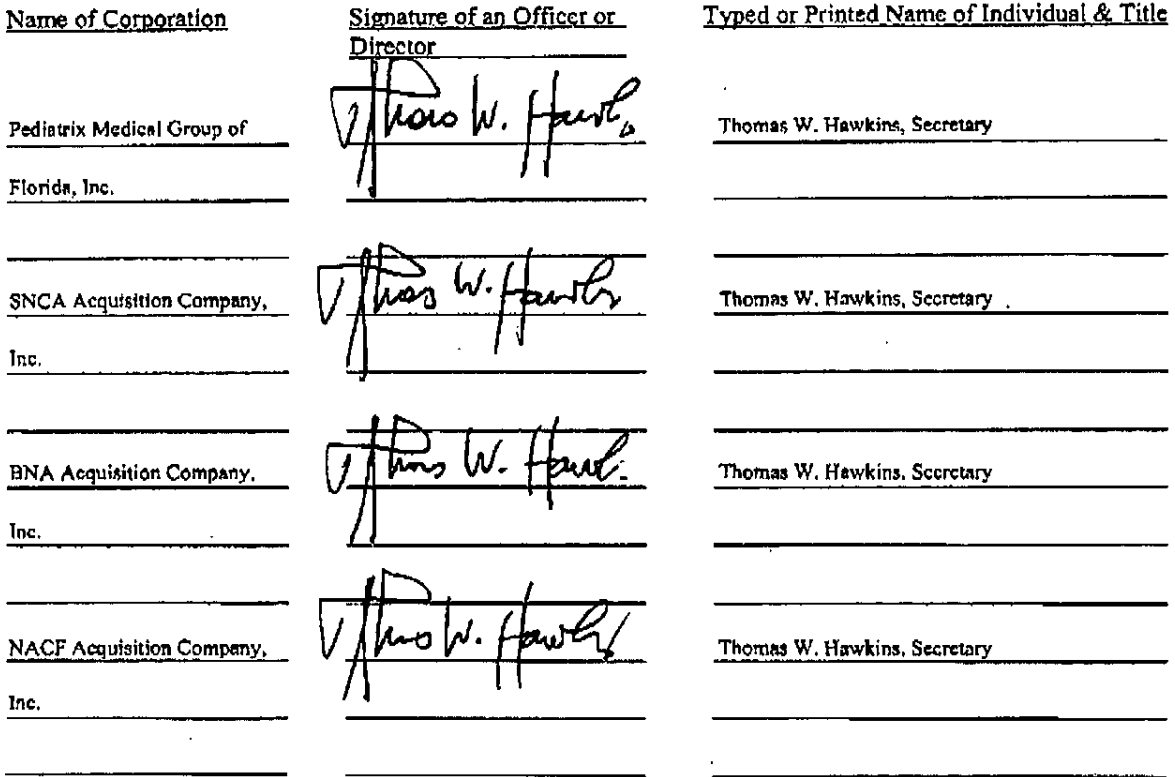 Name of Corporation
Signature of an Officer or
Director
Typed or Printed Name of Individual & Title
Pediatrix Medical Group of
Florida, Inc.
Thomas W. Hawkins
Thomas W. Hawkins, Secretary
SNCA Acquisition Company,
Inc.
Thomas W. Hawkins
Thomas W. Hawkins, Secretary
BNA Acquisition Company,
Inc.
Thomas W. Hawkins
Thomas W. Hawkins, Secretary
NACF Acquisition Company,
Inc.
Thomas W. Hawkins
Thomas W. Hawkins, Secretary